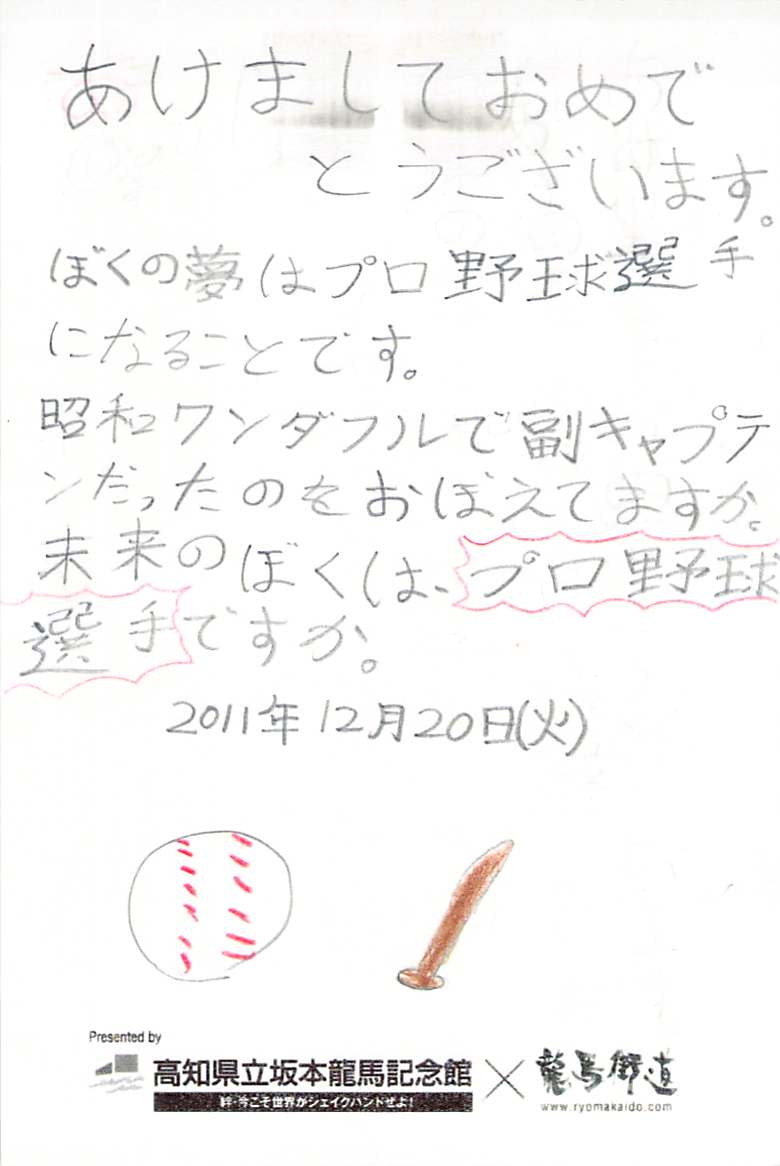 あけましておめで
とうございます。
ぼくの夢はプロ野球選手
になることです。
昭和ワンダフルで副キャプテ
ンだったのをおぼえてますか。
未来のぼくは、プロ野球
選手ですか。
2011年12月20日(火)
Presented by
高知県立坂本龍馬記念館×龍馬街道
絆・今こそ世界がシェイクハンドぜよ!
www.ryomakaido.com